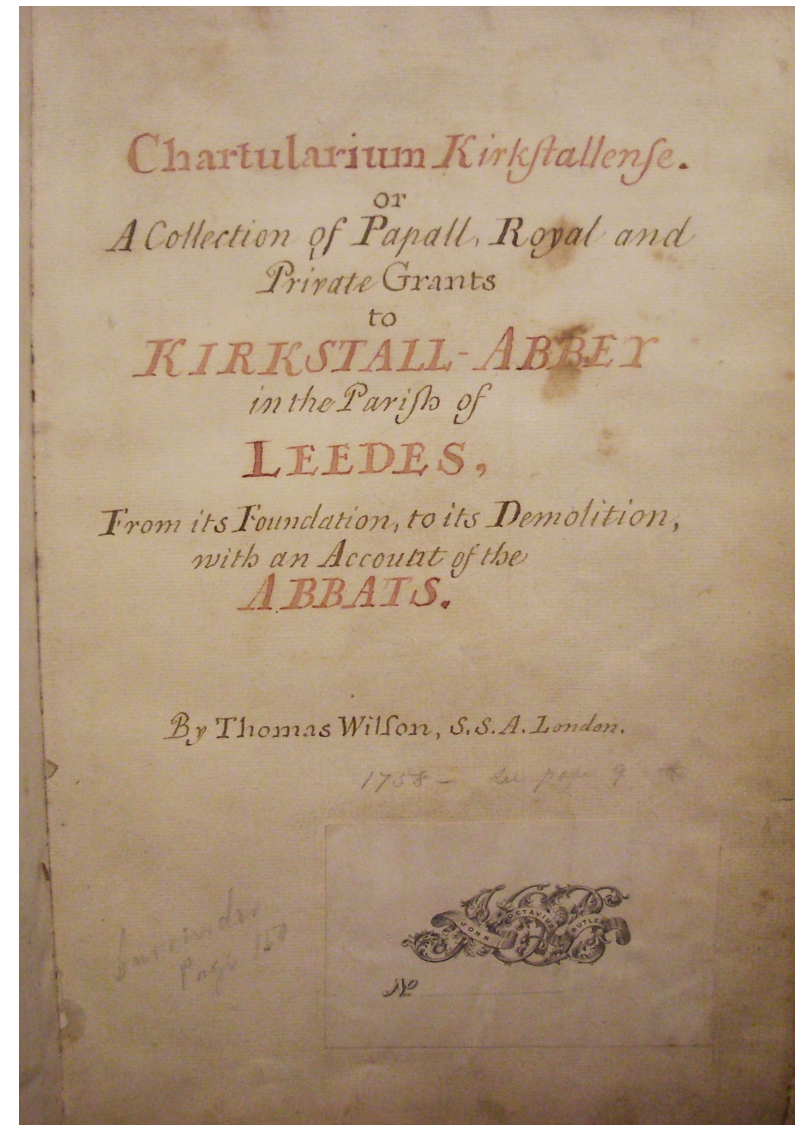 Chartularium Kirkſtallenſe.
or
A Collection of Papall, Royal and
Private Grants
to
KIRKSTALL-ABBEY
in the Pariſh of
LEEDES,
From its Foundation, to its Demolition,
with an Account of the
ABBATS.
By Thomas Wilſon, S.S.A. London.
1758 - See page 9
Surrender
Page 150
JOHN OCTAVIUS BUTLER
No